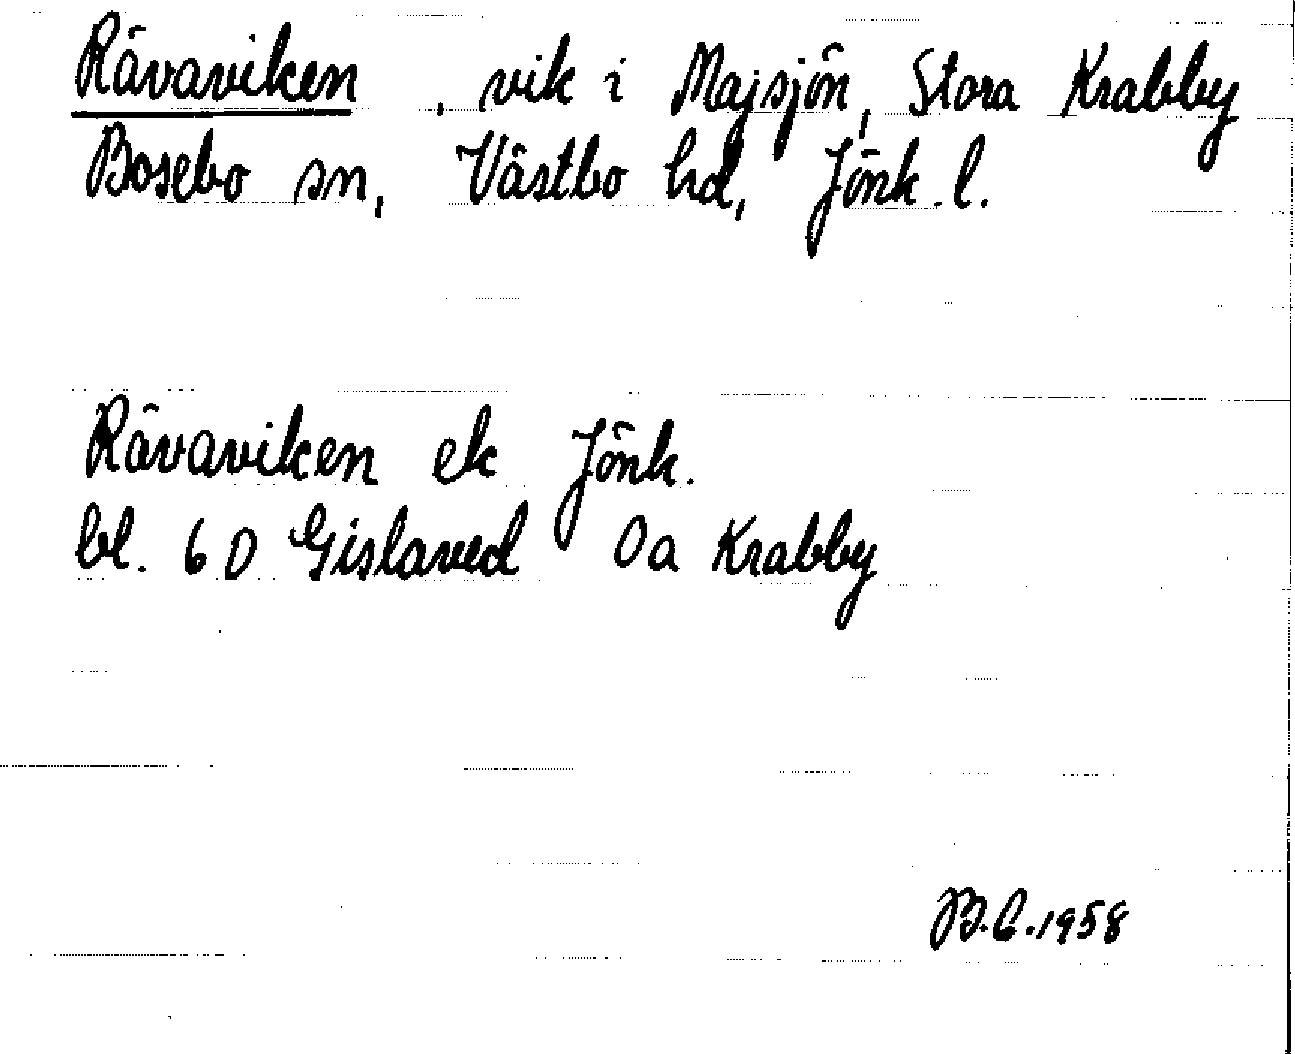 Rävaviken, vik i Majsjön, Stora Krabby
Bosebo sn, Västbo hd, Jönk. l.
Rävaviken ek Jönk.
bl. 6 D Gislaved 0a Krabby
B.E.1958